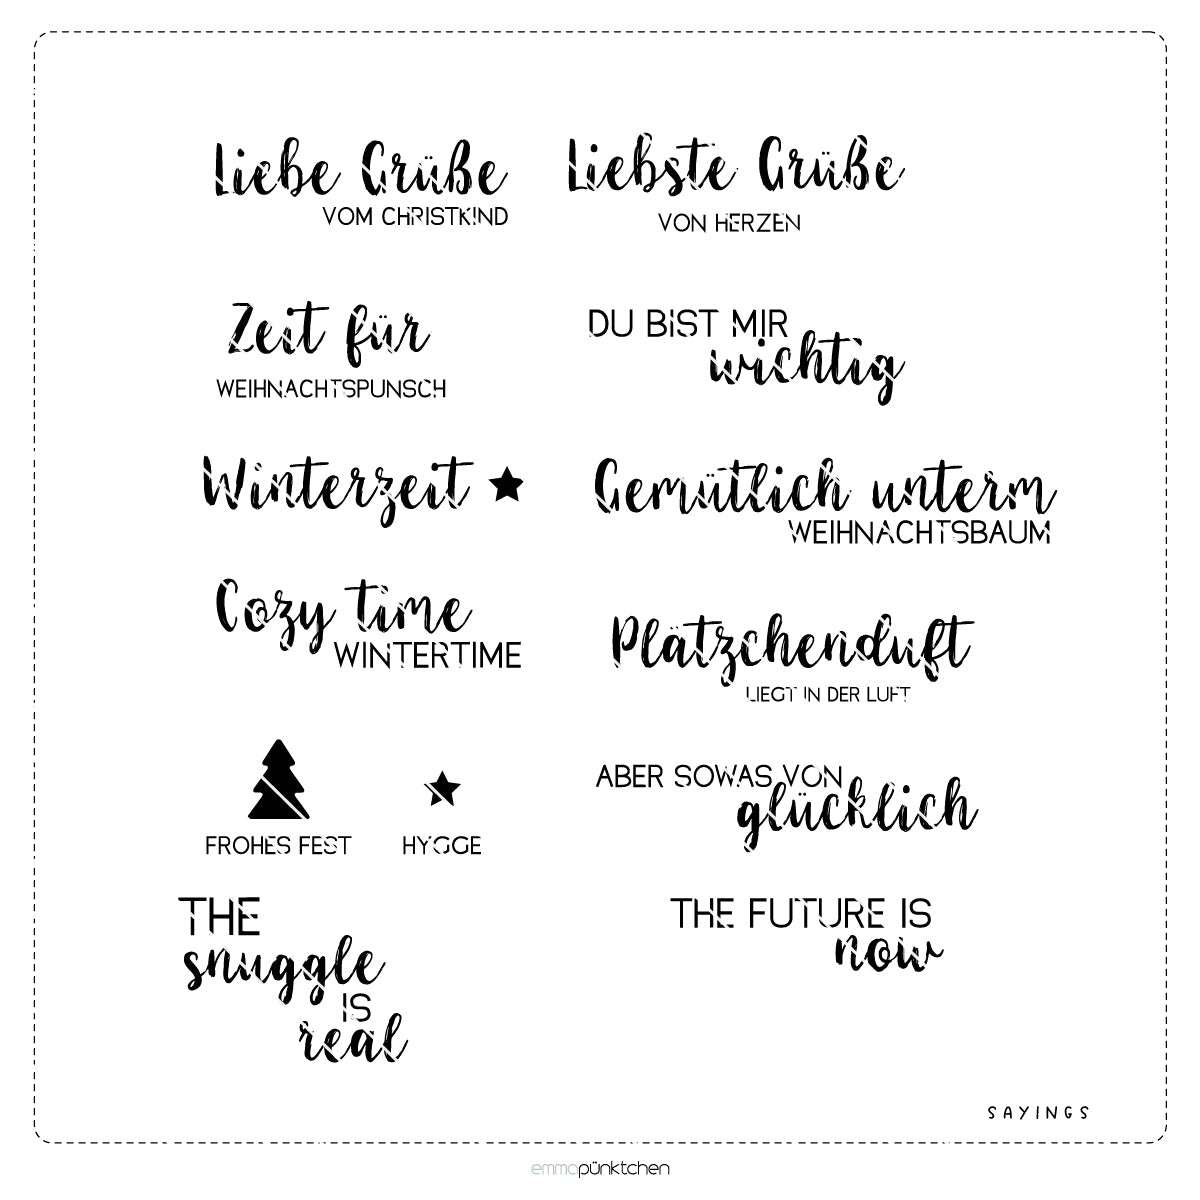 Liebe Grüße
VOM CHRISTKIND
Liebste Grüße
VON HERZEN
Zeit für
WEIHNACHTSPUNSCH
DU BIST MIR
wichtig
Winterzeit
Gemütlich unterm
WEIHNACHTSBAUM
Cozy time
WINTERTIME
Plätzchenduft
LIEGT IN DER LUFT
FROHES FEST
HYGGE
ABER SOWAS VON
glücklich
THE
snuggle
IS
real
THE FUTURE IS
now
SAYINGS
emmapünktchen